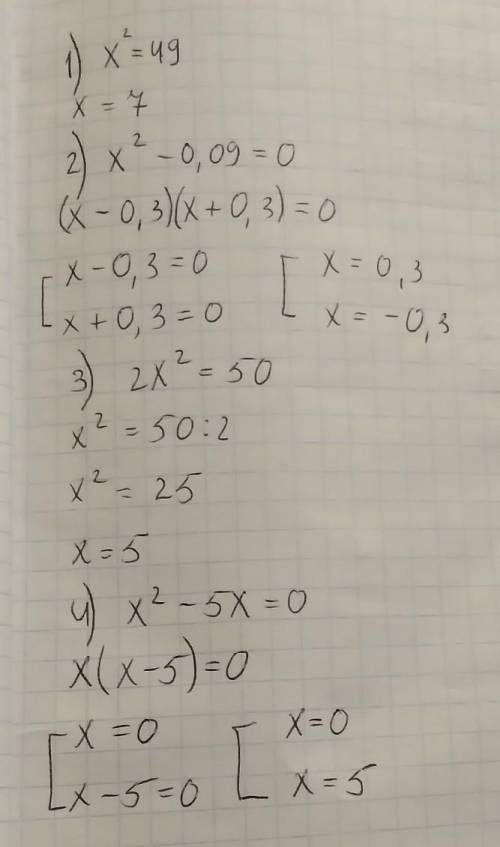 1) x² = 49
x = 7
2) x² - 0,09 = 0
(x - 0,3)(x + 0,3) = 0
[ x - 0,3 = 0 [ x = 0,3
x + 0,3 = 0 x = -0,3
3) 2x² = 50
x² = 50 : 2
x² = 25
x = 5
4) x² - 5x = 0
x(x - 5) = 0
[ x = 0 [ x = 0
x - 5 = 0 x = 5